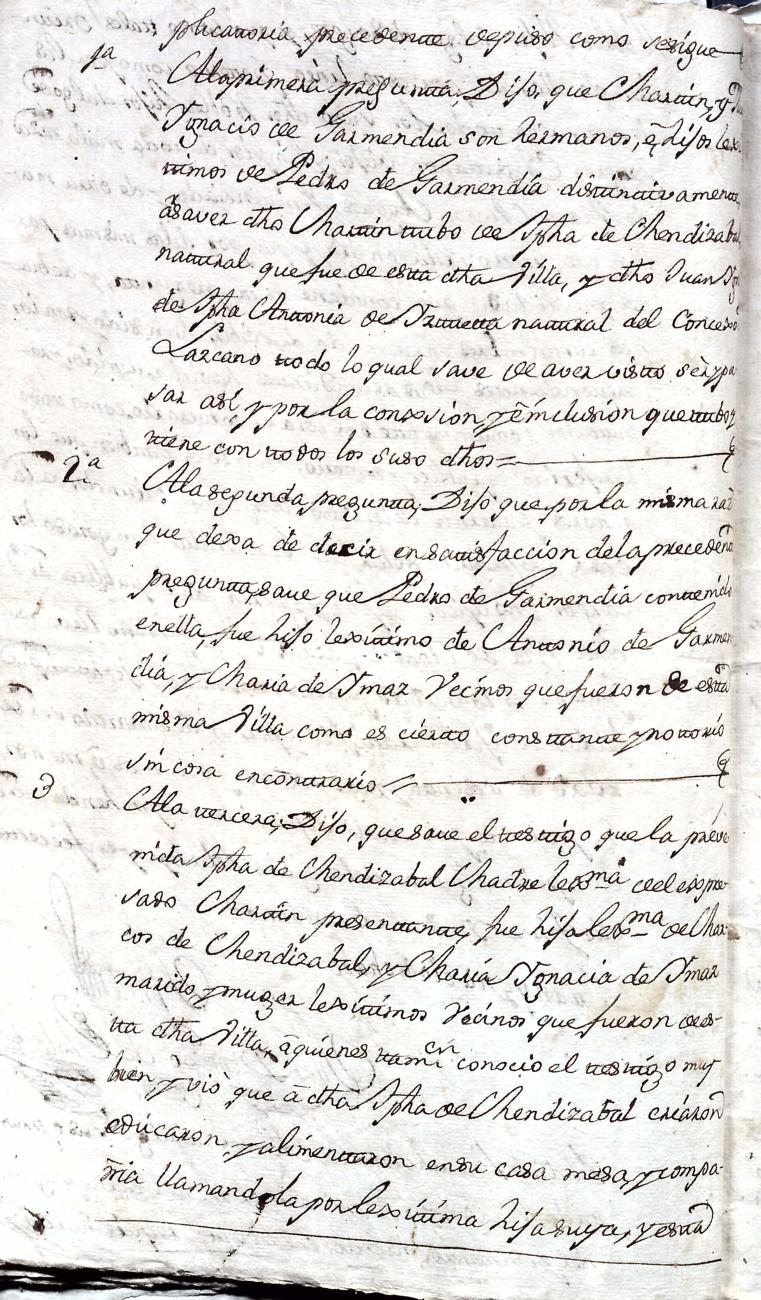 plicatoria precedente depuso como sesigue
1ª Ala primera pregunta, Dijo, que Martin, y Juⁿ
Ygnacio de Garmendia son hermanos, ê hijos lex-
itimos de Pedro de Garmendia distintivamente,
âsaver dho Martin tubo de Jpha de Mendizabal
natural que fue de esta dha Villa, y dho Juan Ygⁿ
de Jpha Antonia de Yztueta natural del Concexo
Lazcano todo lo qual save de aver visto sèr y pa-
sar asi, y por la conexsion, y êmclusion que tubo y
tiene con todos los suso dhos =
2.ª Ala segunda pregunta, Dijo que por la misma razⁿ
que dexa de decir en satisfaccion dela precedente
pregunta, save que Pedro de Garmendia contenido
enella, fue hijo lexitimo de Antonio de Garmen
dia, y Maria de Ymaz Vecinos que fueron de esta
misma Villa como es cierto constante y notorio
sin cosa encontrario =
3 Ala tercera, Dijo, que save el testigo que la preve
nida Jpha de Mendizabal Madre lexᵐᵃ del expre-
sado Martin presentante, fue hija lexᵐᵃ de Mar-
cos de Mendizabal, y Maria Ygnacia de Ymaz
marido, y muger lexitimos Vecinos que fueron de es-
ta dha Villa, â quienes tamⁿ conocio el testigo muy
bien, y viò que â dha Jpha de Mendizabal criaron
educaron, y alimentaron en su casa mesa, y compa-
ñia llamandola por lexitima hija suya, y esta